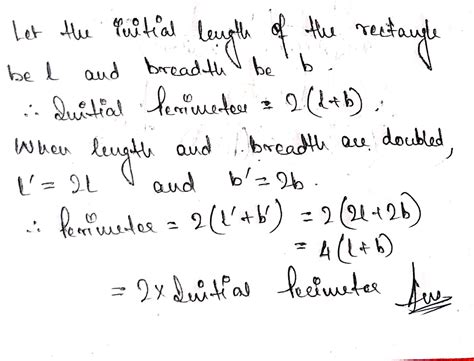 Let the initial length of the rectangle
be l and breadth be b.
∴ Initial Perimeter = 2(l+b).
When length and breadth are doubled,
l' = 2l and b' = 2b.
∴ Perimeter = 2(l'+b') = 2(2l+2b)
= 4(l+b)
= 2× Initial Perimeter Ans